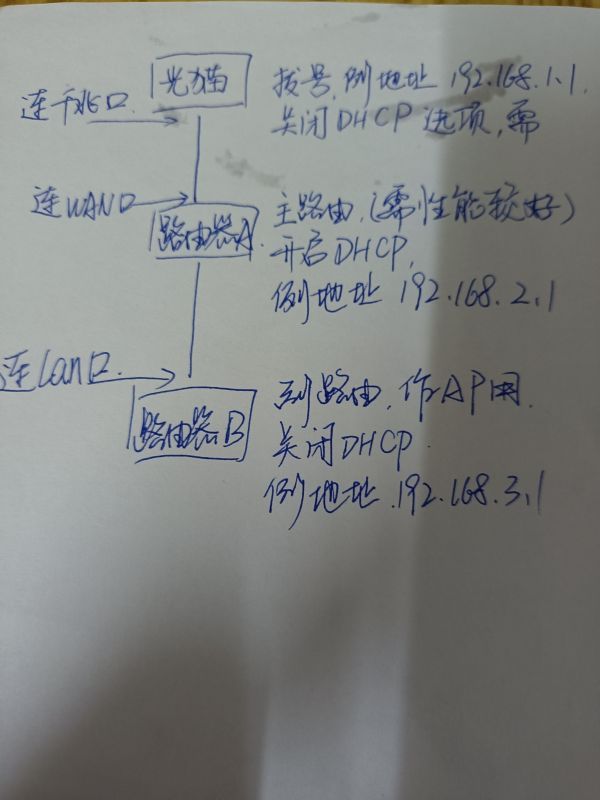 连千兆口
光猫
拨号,例地址 192.168.1.1.
关闭DHCP 选项,需
连WAN口
路由器A.
主路由,(需性能较好)
开启DHCP,
例地址 192.168.2.1
连Lan口
路由器B
副路由,作AP用.
关闭DHCP.
例地址.192.168.3.1